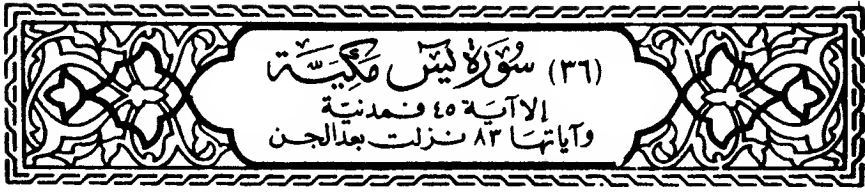 (٣٦) سُورَة يسٓ مَكِّيَّة
إلا آية ٤٥ فمدنية
وآياتها ٨٣ نزلت بعد الجن